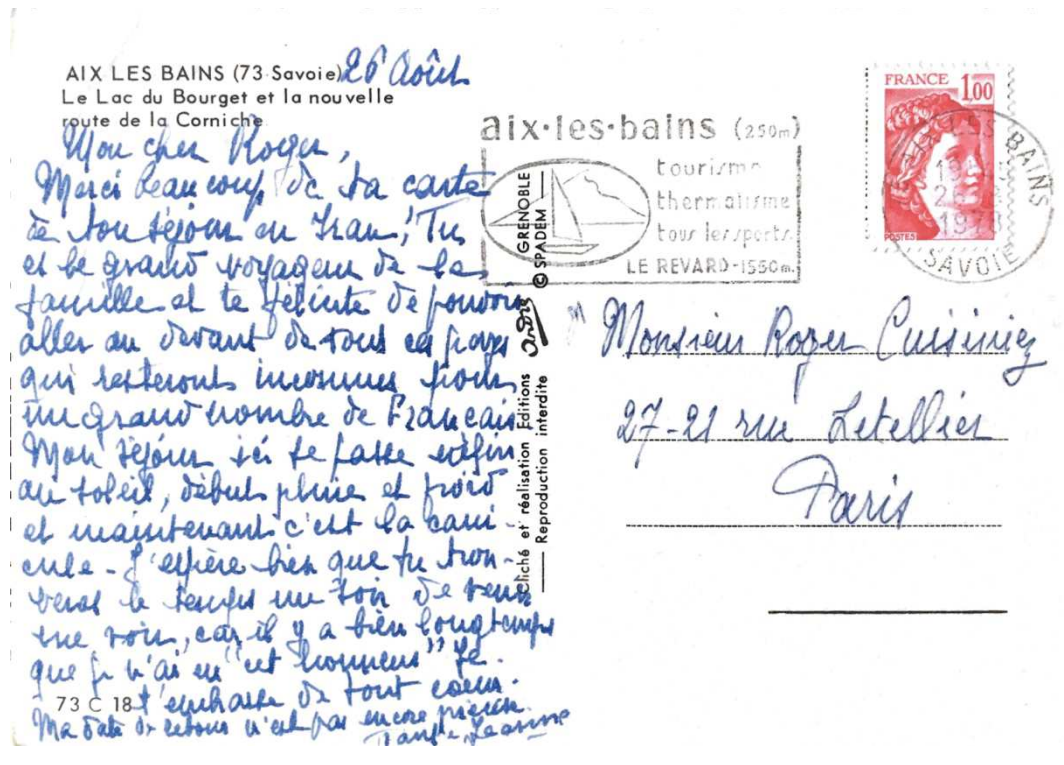 AIX LES BAINS (73 Savoie)
Le Lac du Bourget et la nouvelle
route de la Corniche
26 Août
Mon cher Roger,
Merci beaucoup de ta carte
de ton séjour en Iran! Tu
es le grand voyageur de la
famille et te félicite de pouvoir
aller au devant de tous ces pays
qui resteront inconnus pour
un grand nombre de Français
Mon séjour ici se passe enfin
au soleil, début pluie et froid
et maintenant c'est la cani-
cule - J'espère bien que tu trou-
veras le temps un soir de venir
me voir, car il y a bien longtemps
que je n'ai eu "cet honneur" Je
t'embrasse de tout coeur.
Ma date de retour n'est pas encore précise.
Jeanne
73 C 18
Cliché et réalisation Editions
Reproduction interdite
andré
© SPADEM
GRENOBLE
aix·les·bains (250m)
tourisme
thermalisme
tous les sports
LE REVARD-1550m.
FRANCE 1,00
POSTES
BAINS
SAVOIE
Monsieur Roger
27-21 rue Letellier
Paris